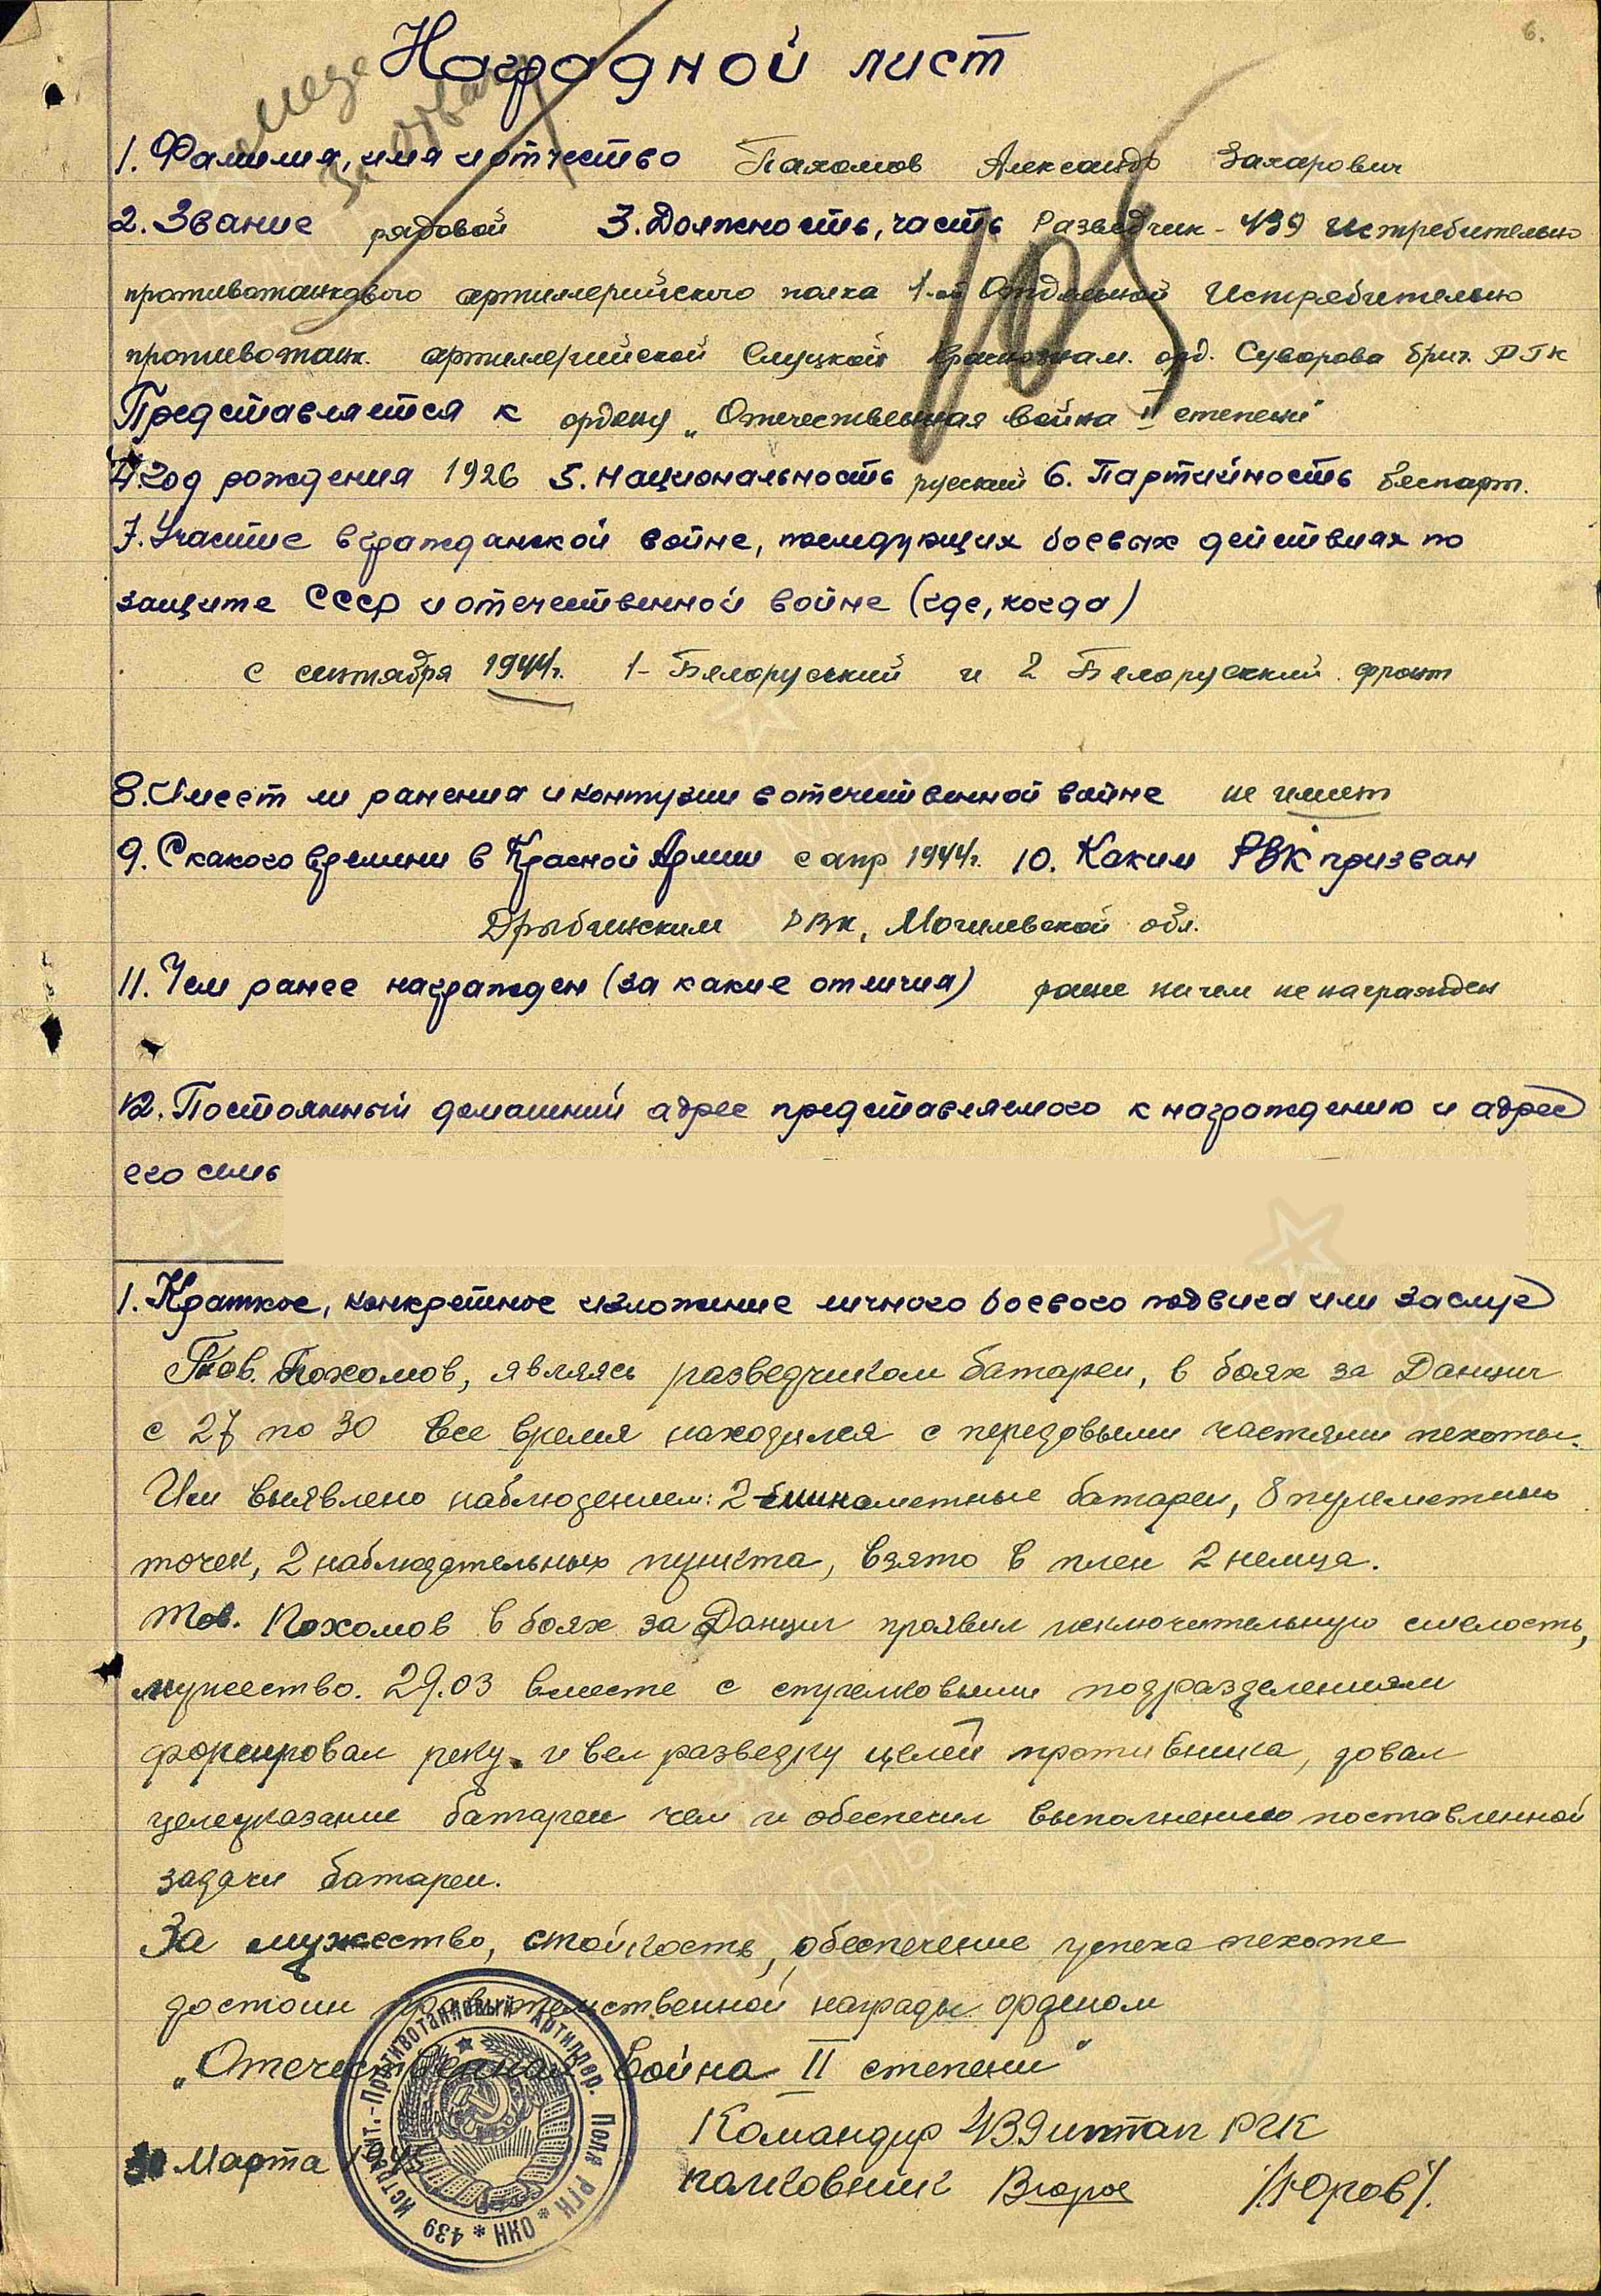 6.
Наградной лист
Меда
За Отвагу
105
1. Фамилия, имя и отчество Пахомов Александр Захарович
2. Звание рядовой 3. Должность, часть Разведчик - 439 Истребительно
противотанкового артиллерийского полка 1-ой Отдельной Истребительно
противотанк. артиллерийской Слуцкой Краснознам. орд. Суворова бриг. РГК
Представляется к ордену „Отечественная война II степени"
4. Год рождения 1926 5. Национальность русский 6. Партийность беспарт.
7. Участие в гражданской войне, последующих боевых действиях по
защите СССР и отечественной войне (где, когда)
с сентября 1944г. 1-Белоруський и 2 Белорусский фронт
8. Имеет ли ранения и контузии в отечественной войне не имеет
9. С какого времени в Красной Армии с апр 1944г. 10. Каким РВК призван
Дрыбинским РВК, Могилевской обл.
11. Чем ранее награжден (за какие отличия) ранее ничем не награжден
12. Постоянный домашний адрес представляемого к награждению и адрес
его семь
1. Краткое, конкретное изложение личного боевого подвига или заслуг
Тов. Похомов, являясь разведчиком батареи, в боях за Данциг
с 27 по 30 все время находился с передовыми частями пехоты.
Им выявлено наблюдением: 2 минометные батареи, 8 пулеметных
точек, 2 наблюдательных пункта, взято в плен 2 немца.
Тов. Похомов в боях за Данциг проявил исключительную смелость,
мужество. 29.03 вместе с стрелковыми подразделениями
форсировал реку и вел разведку целей противника, довал
целеуказание батареи чем и обеспечил выполнению поставленной
задачи батареи.
За мужество, стойкость, обеспечение успеха пехоте
достоин правительственной награды орденом
„Отечественная Война II степени"
Командир 439 иптап РГК
30 Марта 1945 полковник /Юров/.
Истребит.-Противотанковый Артиллер. Полк РГК * НКО * 439
ПАМЯТЬ НАРОДА